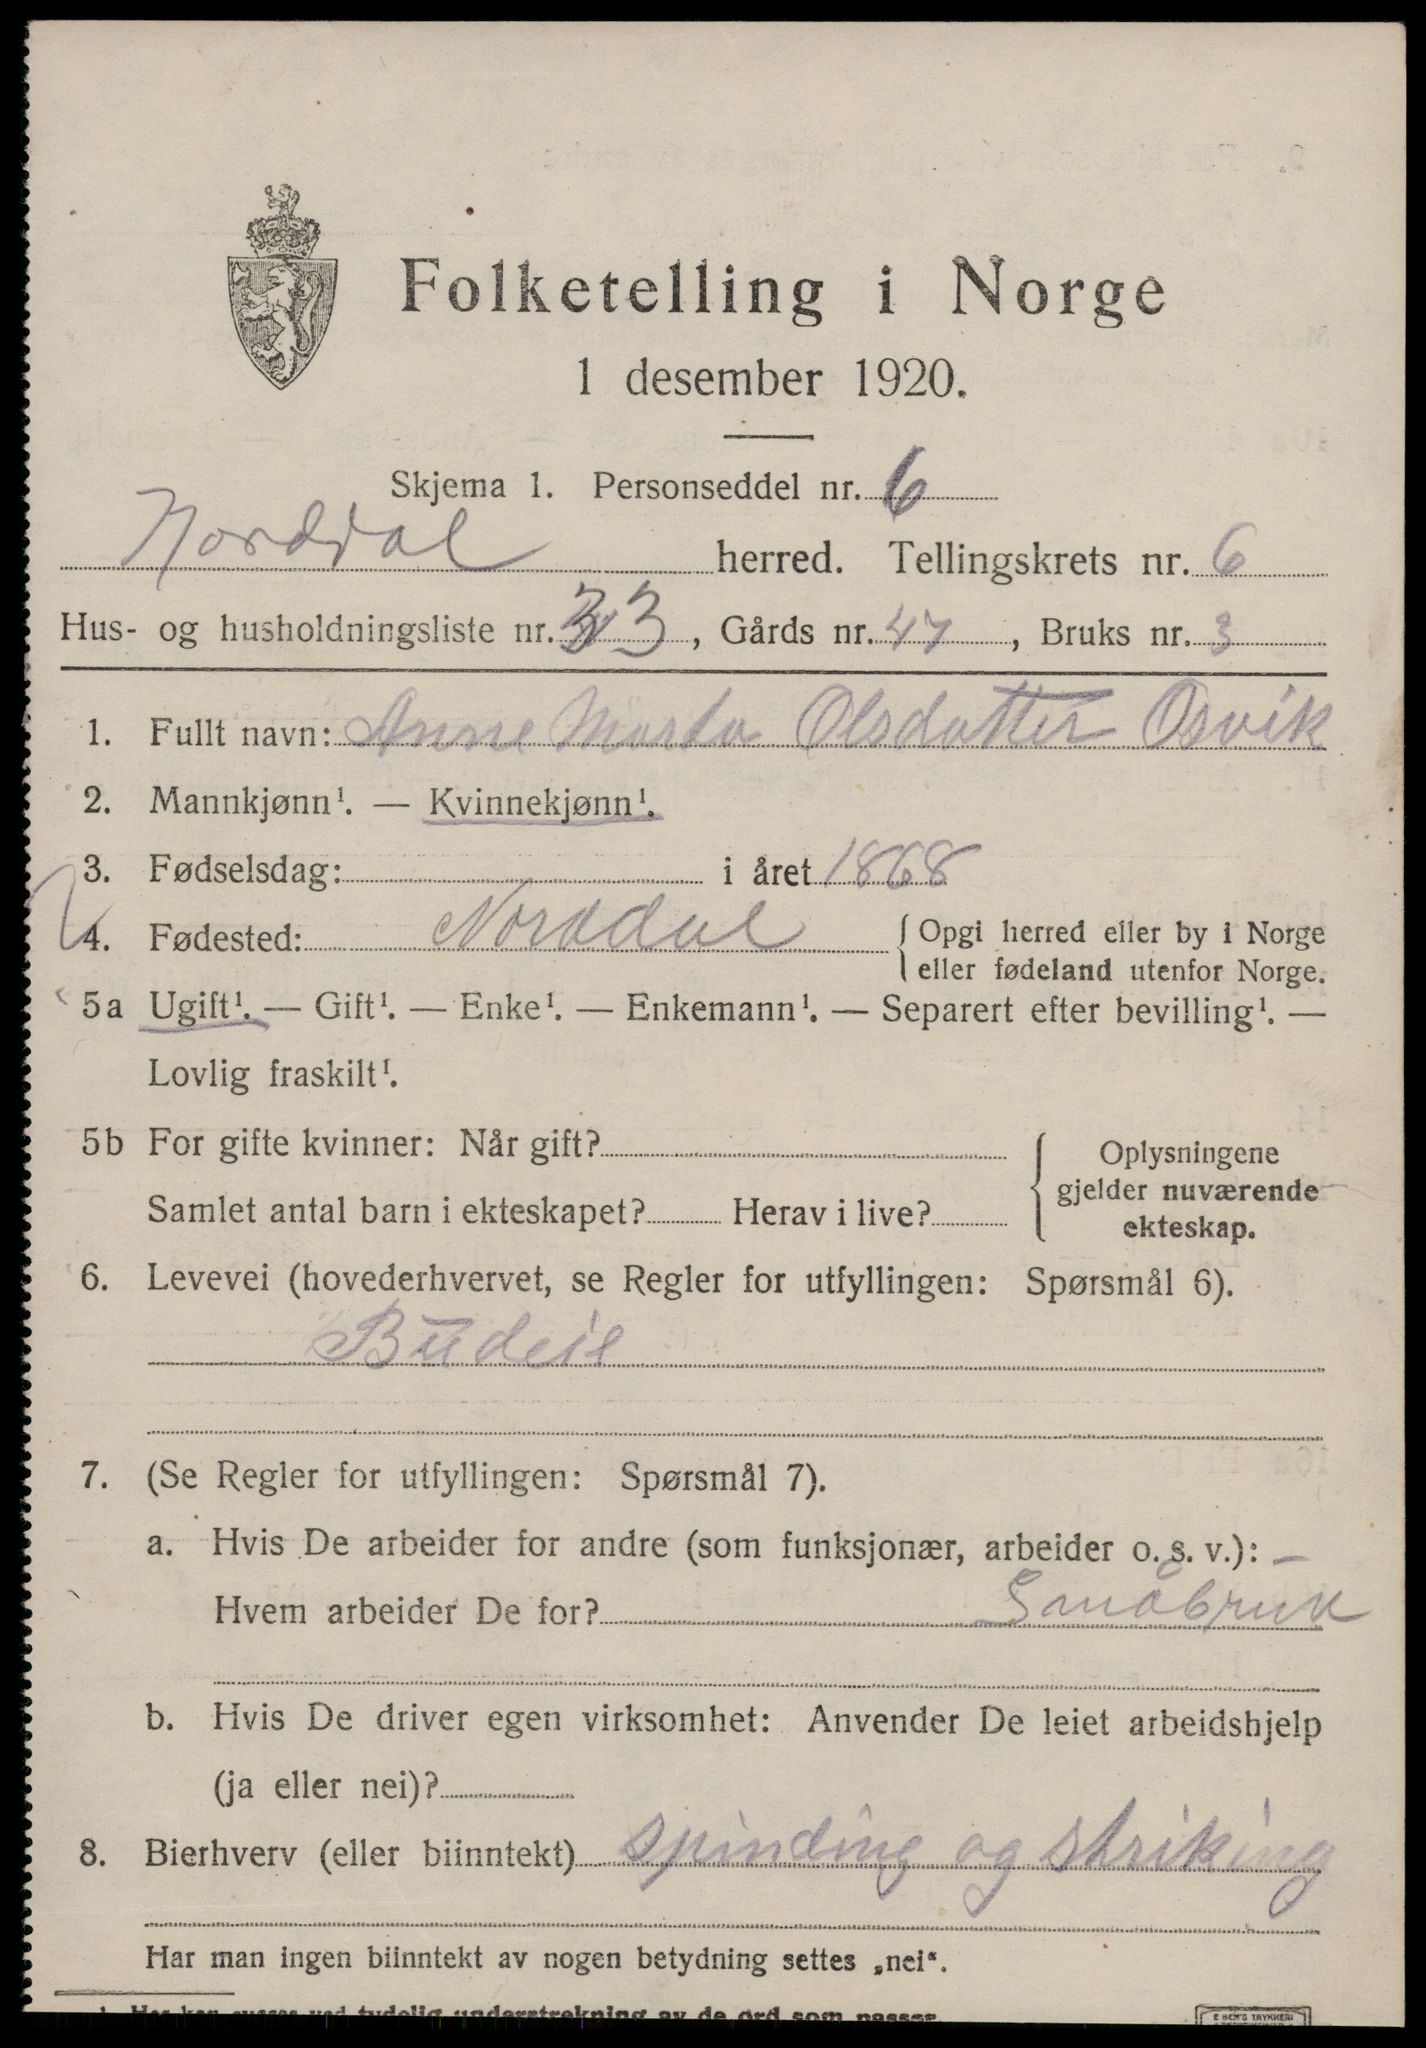 Folketelling i Norge
1 desember 1920.
Skjema 1. Personseddel nr. 6
Norddal herred. Tellingskrets nr. 6
Hus- og husholdningsliste nr. 33, Gårds nr. 47, Bruks nr. 3
1. Fullt navn: Anne Marta Olsdatter Osvik
2. Mannkjønn¹. — Kvinnekjønn¹.
3. Fødselsdag: i året 1868
4. Fødested: Norddal { Opgi herred eller by i Norge
eller fødeland utenfor Norge.
5a Ugift¹. — Gift¹. — Enke¹. — Enkemann¹. — Separert efter bevilling¹. —
Lovlig fraskilt¹.
5b For gifte kvinner: Når gift? { Oplysningene
gjelder nuværende
Samlet antal barn i ekteskapet? Herav i live? ekteskap.
6. Levevei (hovederhvervet, se Regler for utfyllingen: Spørsmål 6).
Budeie
7. (Se Regler for utfyllingen: Spørsmål 7).
a. Hvis De arbeider for andre (som funksjonær, arbeider o. s. v.): —
Hvem arbeider De for?
b. Hvis De driver egen virksomhet: Anvender De leiet arbeidshjelp
(ja eller nei)?
8. Bierhverv (eller biinntekt) spinding og striking
Har man ingen biinntekt av nogen betydning settes „nei“.